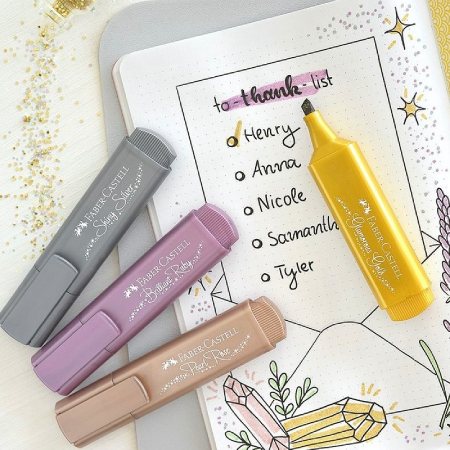 to-thank-list
Henry
Anna
Nicole
Samantha
Tyler
FABER CASTELL
Shiny Silver
FABER-CASTELL
Brilliant Ruby
FABER-CASTELL
Pearl Rose
FABER-CASTELL
Glamorous Gold